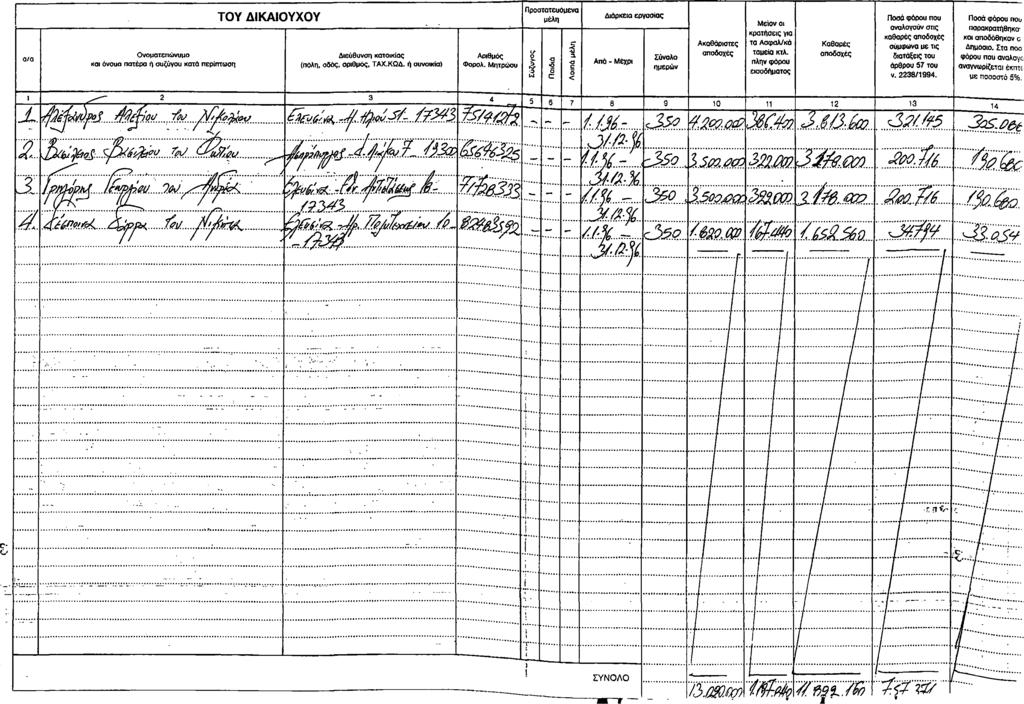 ΤΟΥ ΔΙΚΑΙΟΥΧΟΥ
Προστατευόμενα μέλη
Διάρκεια εργασίας
α/α
Ονοματεπώνυμο
και όνομα πατέρα ή συζύγου κατά περίπτωση
Διεύθυνση κατοικίας
(πόλη, οδός, αριθμός, ΤΑΧ.ΚΩΔ. ή συνοικία)
Αριθμός
Φορολ. Μητρώου
Σύζυγος
Παιδιά
Λοιπά μέλη
Από - Μέχρι
Σύνολο
ημερών
Ακαθάριστες
αποδοχές
Μείον οι
κρατήσεις για
τα Ασφαλ/κά
ταμεία κτλ.
πλην φόρου
εισοδήματος
Καθαρές
αποδοχές
Ποσά φόρου που
αναλογούν στις
καθαρές αποδοχές
σύμφωνα με τις
διατάξεις του
άρθρου 57 του
ν. 2238/1994.
Ποσά φόρου που
παρακρατήθηκα
και αποδόθηκαν σ
Δημόσιο. Στα ποσ
φόρου που αναλογε
αναγνωρίζεται έκπτι
με ποσοστό 5%.
1 2 3 4 5 6 7 8 9 10 11 12 13 14
1. Αλεξάνδρος Αλεξίου του Νικολάου Ελευσίνα 51 - 17343 75141212 - - - 1.1.96 - 350 4.200.000 386.400 3.813.600 321.145
31.12.96
2. Βασίλειος Βασιλείου του Φωτίου Ασπρόπυργος 7 - 19300 65646325 - - - 1.1.96 - 350 3.500.000 322.000 3.178.000 200.716 190.680
31.12.96
3. Γρηγόρης Γεωργίου του Ανδρέα Ελευσίνα 18 - 71728333 - - - 1.1.96 - 350 3.500.000 322.000 3.178.000 200.716 190.680
17343 31.12.96
4. Δέσποινα του Νικήτα Ελευσίνα - Ηρ. Πολυτεχνείου 10 - 82483592 - - - 1.1.96 - 350 1.820.000 167.440 1.652.560 34.794 33.054
17343 31.12.96
ΣΥΝΟΛΟ
13.020.000 1.197.840 11.822.160 757.371